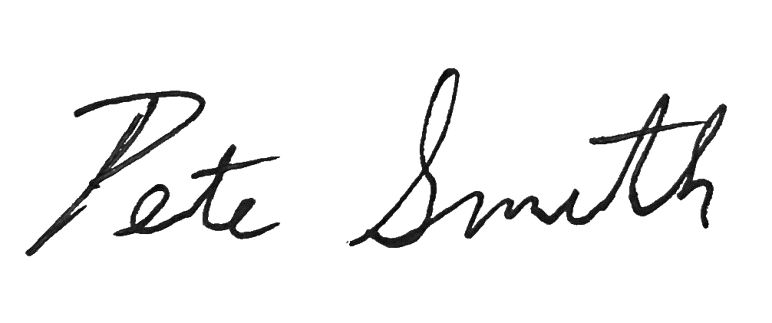 Pete Smith